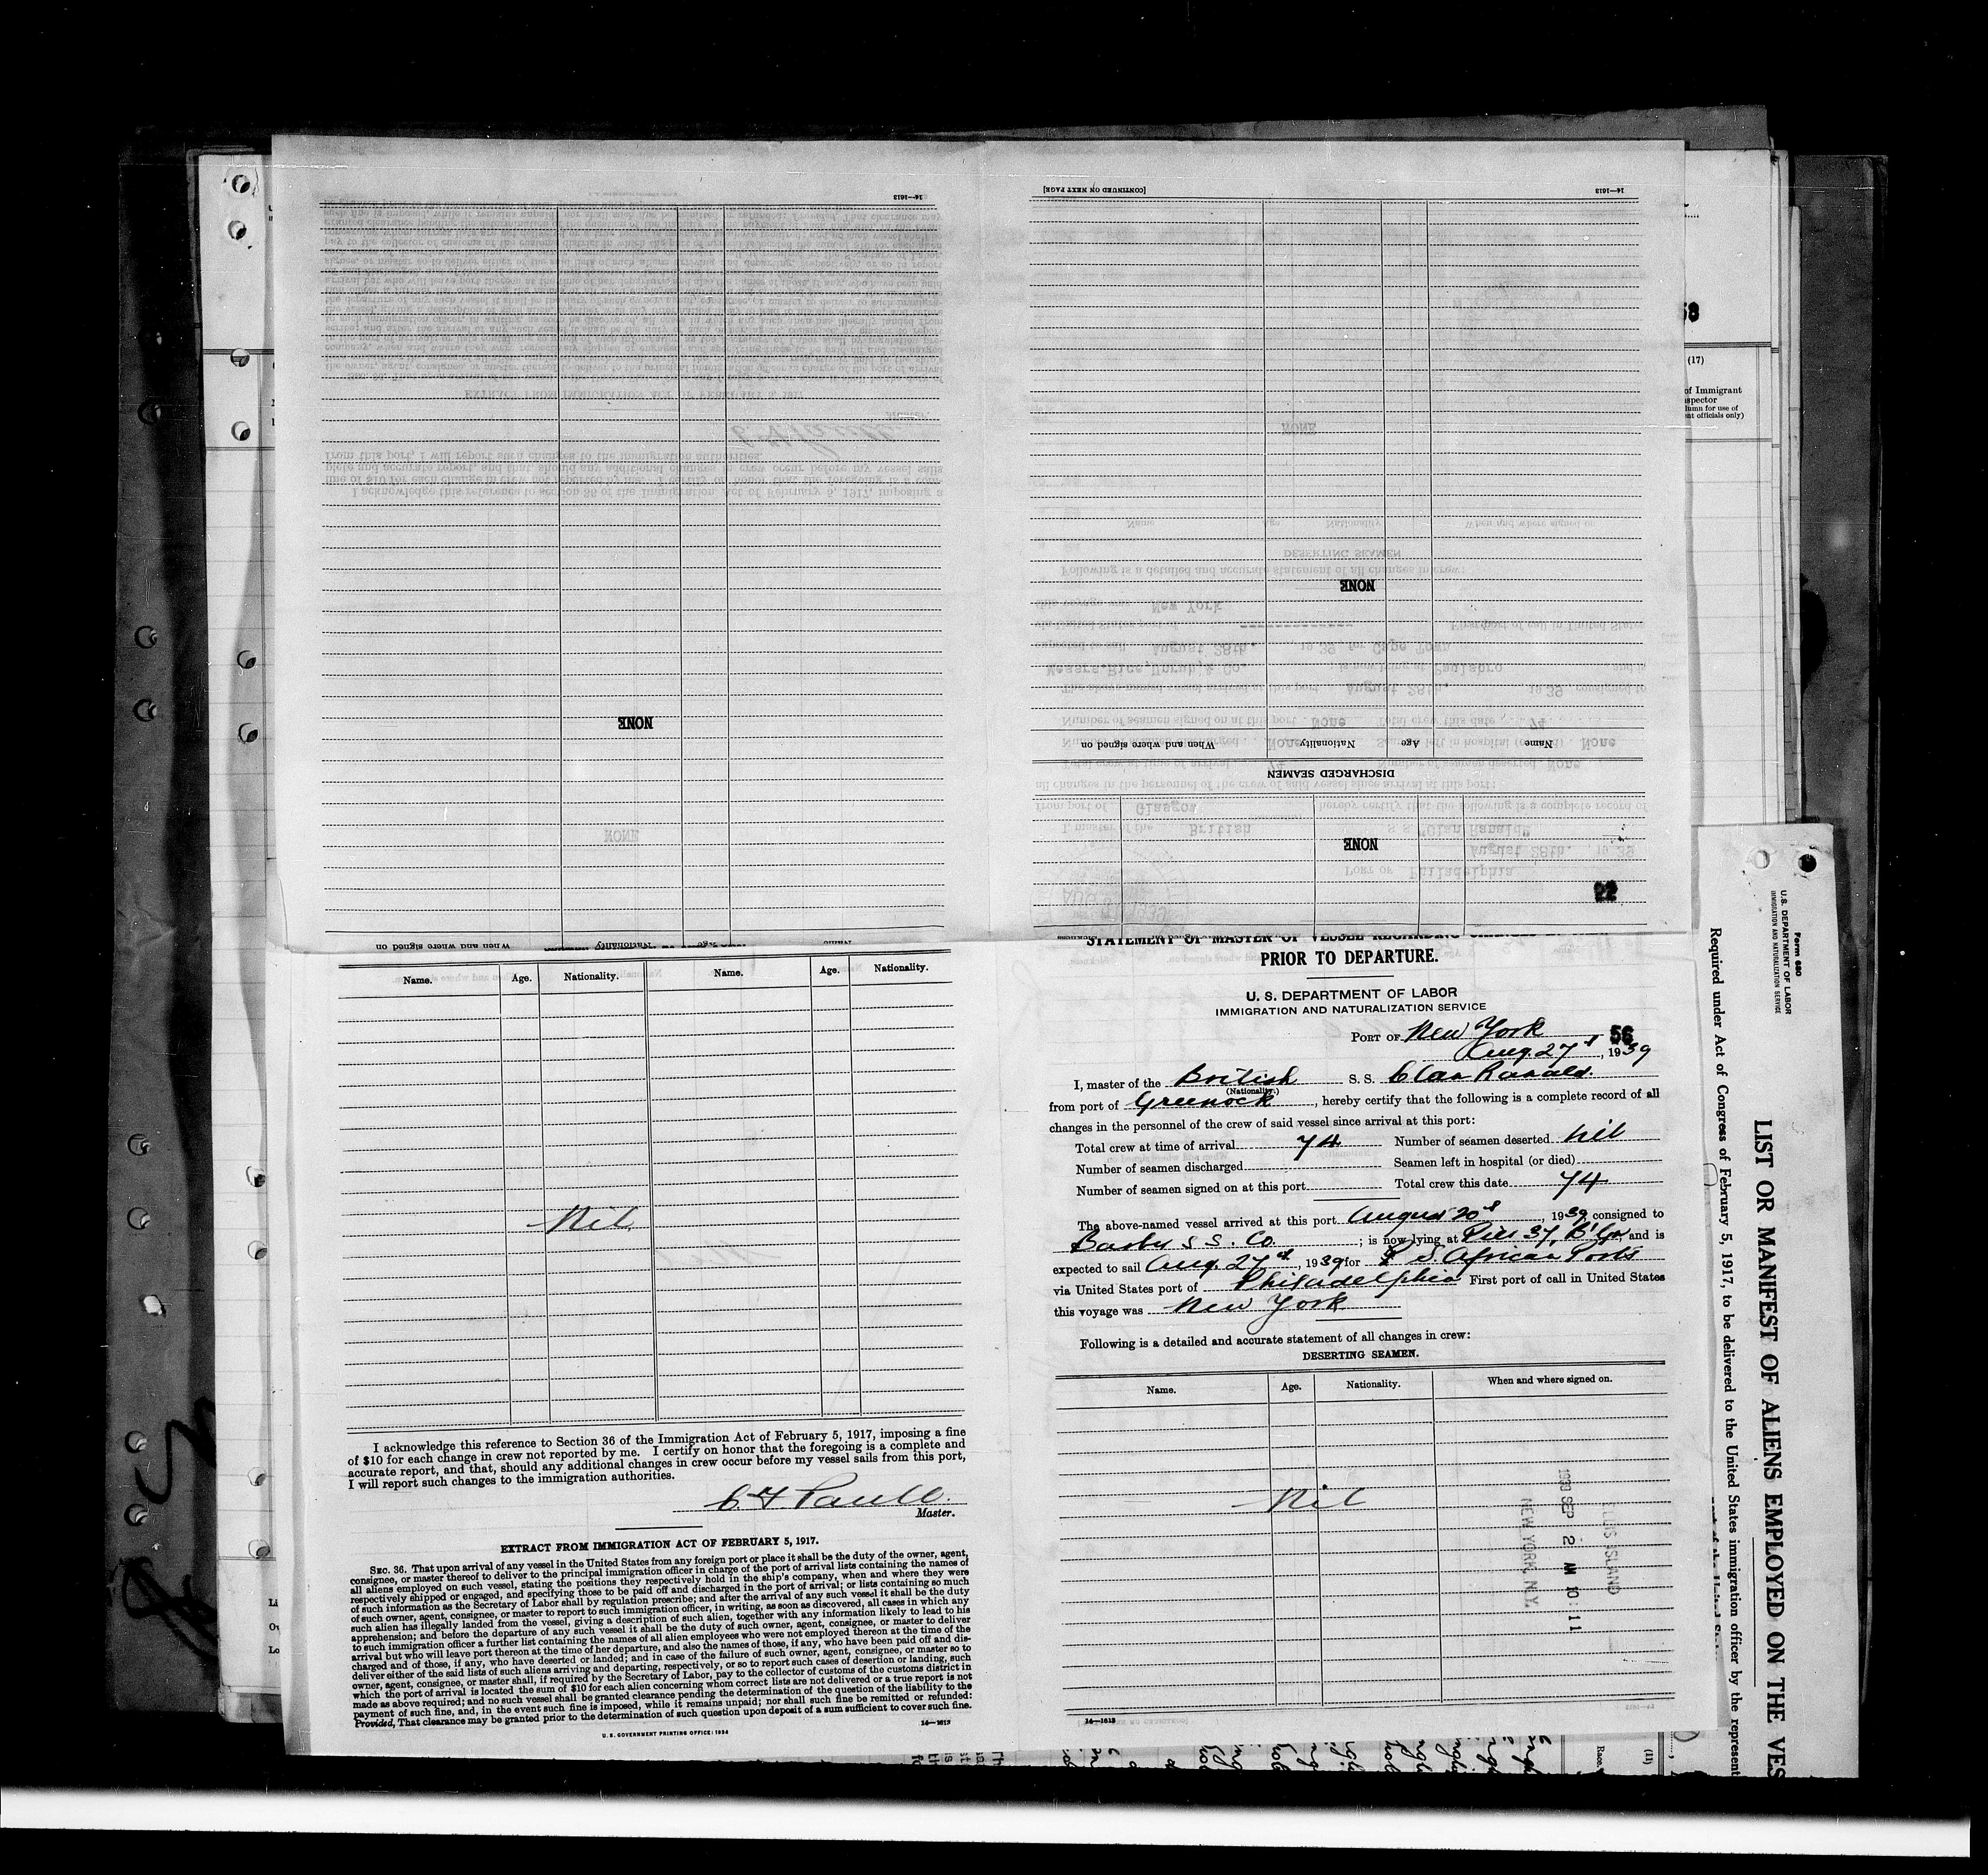 [CONTINUED ON NEXT PAGE]
14—1613
14—1613
NONE
NONE
Name Age Nationality When and where signed on
DISCHARGED SEAMEN
NONE
22
Name Age Nationality When and where signed on
58
(17)
of Immigrant
Inspector
umn for use of
nt officials only)
Name. Age. Nationality. Name. Age. Nationality.
Nil
I acknowledge this reference to Section 36 of the Immigration Act of February 5, 1917, imposing a fine
of $10 for each change in crew not reported by me. I certify on honor that the foregoing is a complete and
accurate report, and that, should any additional changes in crew occur before my vessel sails from this port,
I will report such changes to the immigration authorities.
Master.
EXTRACT FROM IMMIGRATION ACT OF FEBRUARY 5, 1917.
SEC. 36. That upon arrival of any vessel in the United States from any foreign port or place it shall be the duty of the owner, agent,
consignee, or master thereof to deliver to the principal immigration officer in charge of the port of arrival lists containing the names of
all aliens employed on such vessel, stating the positions they respectively hold in the ship's company, when and where they were
respectively shipped or engaged, and specifying those to be paid off and discharged in the port of arrival; or lists containing so much
of such information as the Secretary of Labor shall by regulation prescribe; and after the arrival of any such vessel it shall be the duty
of such owner, agent, consignee, or master to report to such immigration officer, in writing, as soon as discovered, all cases in which any
such alien has illegally landed from the vessel, giving a description of such alien, together with any information likely to lead to his
apprehension; and before the departure of any such vessel it shall be the duty of such owner, agent, consignee, or master to deliver
to such immigration officer a further list containing the names of all alien employees who were not employed thereon at the time of the
arrival but who will leave port thereon at the time of her departure, and also the names of those, if any, who have been paid off and dis-
charged and of those, if any, who have deserted or landed; and in case of the failure of such owner, agent, consignee, or master so to
deliver either of the said lists of such aliens arriving and departing, respectively, or so to report such cases of desertion or landing, such
owner, agent, consignee, or master shall, if required by the Secretary of Labor, pay to the collector of customs of the customs district in
which the port of arrival is located the sum of $10 for each alien concerning whom correct lists are not delivered or a true report is not
made as above required; and no such vessel shall be granted clearance pending the determination of the question of the liability to the
payment of such fine, and, in the event such fine is imposed, while it remains unpaid; nor shall such fine be remitted or refunded:
Provided, That clearance may be granted prior to the determination of such question upon deposit of a sum sufficient to cover such fine.
U. S. GOVERNMENT PRINTING OFFICE: 1934 14—1613
STATEMENT OF MASTER OF VESSEL REGARDING CHANGES
PRIOR TO DEPARTURE.
U. S. DEPARTMENT OF LABOR
IMMIGRATION AND NATURALIZATION SERVICE
PORT OF New York 56
Aug. 27th, 1939
I, master of the British S. S. Clan Ranald
(Nationality.)
from port of Greenock, hereby certify that the following is a complete record of all
changes in the personnel of the crew of said vessel since arrival at this port:
Total crew at time of arrival 74 Number of seamen deserted Nil
Number of seamen discharged Seamen left in hospital (or died)
Number of seamen signed on at this port Total crew this date 74
The above-named vessel arrived at this port August 20th, 1939, consigned to
Barber S S. Co. ; is now lying at Pier 37, B'lyn and is
expected to sail Aug. 27th, 1939 for S African Ports
via United States port of Philadelphia First port of call in United States
this voyage was New York
Following is a detailed and accurate statement of all changes in crew:
DESERTING SEAMEN.
Name. Age. Nationality. When and where signed on.
Nil
ELLIS ISLAND
1939 SEP 2 AM 10 11
NEW YORK, N.Y.
14—1613
Form 680
U. S. DEPARTMENT OF LABOR
IMMIGRATION AND NATURALIZATION SERVICE
LIST OR MANIFEST OF ALIENS EMPLOYED ON THE VES
Required under Act of Congress of February 5, 1917, to be delivered to the United States immigration officer by the represent
(11)
Race.